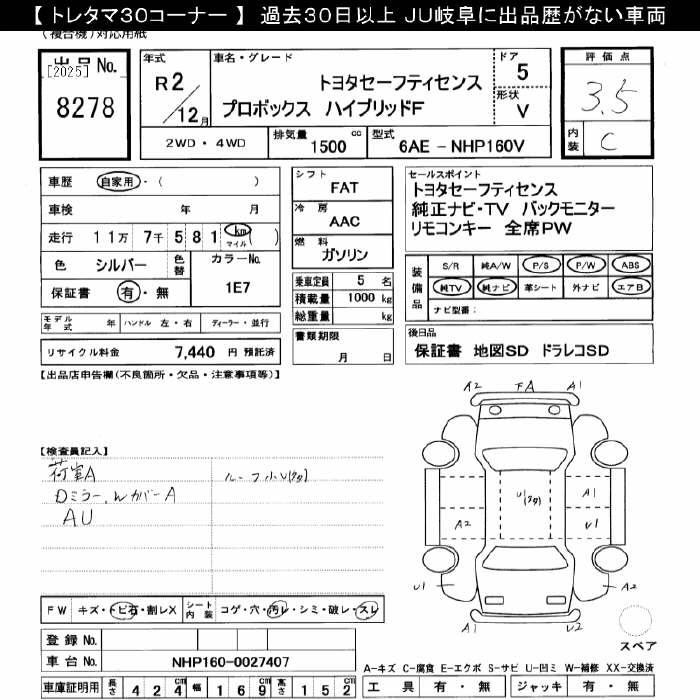 【 トレタマ30コーナー 】 過去30日以上 JU岐阜に出品歴がない車両
(複合機)対応用紙
出品 No.
[2025]
8278
年式
R2/12月
車名・グレード
トヨタセーフティセンス
プロボックス ハイブリッドF
ドア
5
形状
V
評価点
3.5
内装
C
2WD・4WD
排気量
1500 cc
型式
6AE - NHP160V
車歴 自家用・( )
車検 年 月
走行 11万 7千 5 8 1 km マイル ( )
色 シルバー 色替
カラーNo.
1E7
保証書 有・無
モデル年式 年 ハンドル 左・右 ディーラー・並行
リサイクル料金 7,440 円 預託済
シフト
FAT
冷房
AAC
燃料
ガソリン
乗車定員 5 名
積載量 1000 kg
総重量 kg
書類期限
月 日
セールスポイント
トヨタセーフティセンス
純正ナビ・TV バックモニター
リモコンキー 全席PW
装備品
S/R 純A/W P/S P/W ABS
純TV 純ナビ 革シート 外ナビ エアB
ナビ型番:
後日品
保証書 地図SD ドラレコSD
【出品店申告欄(不良箇所・欠品・注意事項等)】
【検査員記入】
荷室A
Dミラー, Wカバー A
AU
ルーフ小U(タタ)
A2 FA A1
U(タタ)
A1
A2
U1
U1
A2
A1
U2
スペア
FW キズ・トビ石・割レX
シート内装 コゲ・穴・汚レ・シミ・破レ・スレ
登録 No.
車台 No. NHP160-0027407
車庫証明用 長さ 4 2 4 cm 幅 1 6 9 cm 高さ 1 5 2 cm
A-キズ C-腐食 E-エクボ S-サビ U-凹ミ W-補修 XX-交換済
工具 有・無 ジャッキ 有・無